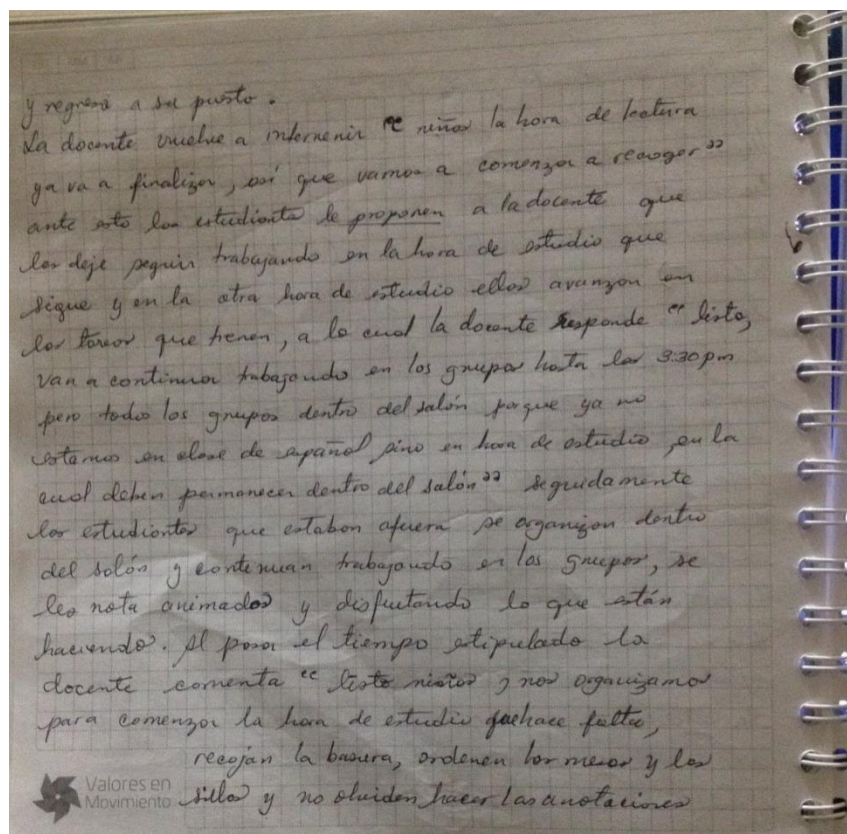 y regresa a su puesto.
La docente vuelve a intervenir "niños la hora de lectura
ya va a finalizar, así que vamos a comenzar a recoger"
ante esto los estudiantes le proponen a la docente que
los deje seguir trabajando en la hora de estudio que
sigue y en la otra hora de estudio ellos avanzan en
las tareas que tienen, a lo cual la docente responde "listo,
van a continuar trabajando en los grupos hasta las 3:30 pm
pero todos los grupos dentro del salón porque ya no
estamos en clase de español sino en hora de estudio, en la
cual deben permanecer dentro del salón" seguidamente
los estudiantes que estaban afuera se organizan dentro
del salón y continuan trabajando en los grupos, se
les nota animados y disfrutando lo que están
haciendo. Al pasar el tiempo estipulado la
docente comenta "listo niños, nos organizamos
para comenzar la hora de estudio que hace falta,
recojan la basura, ordenen las mesas y las
sillas y no olviden hacer las anotaciones
Valores en
Movimiento